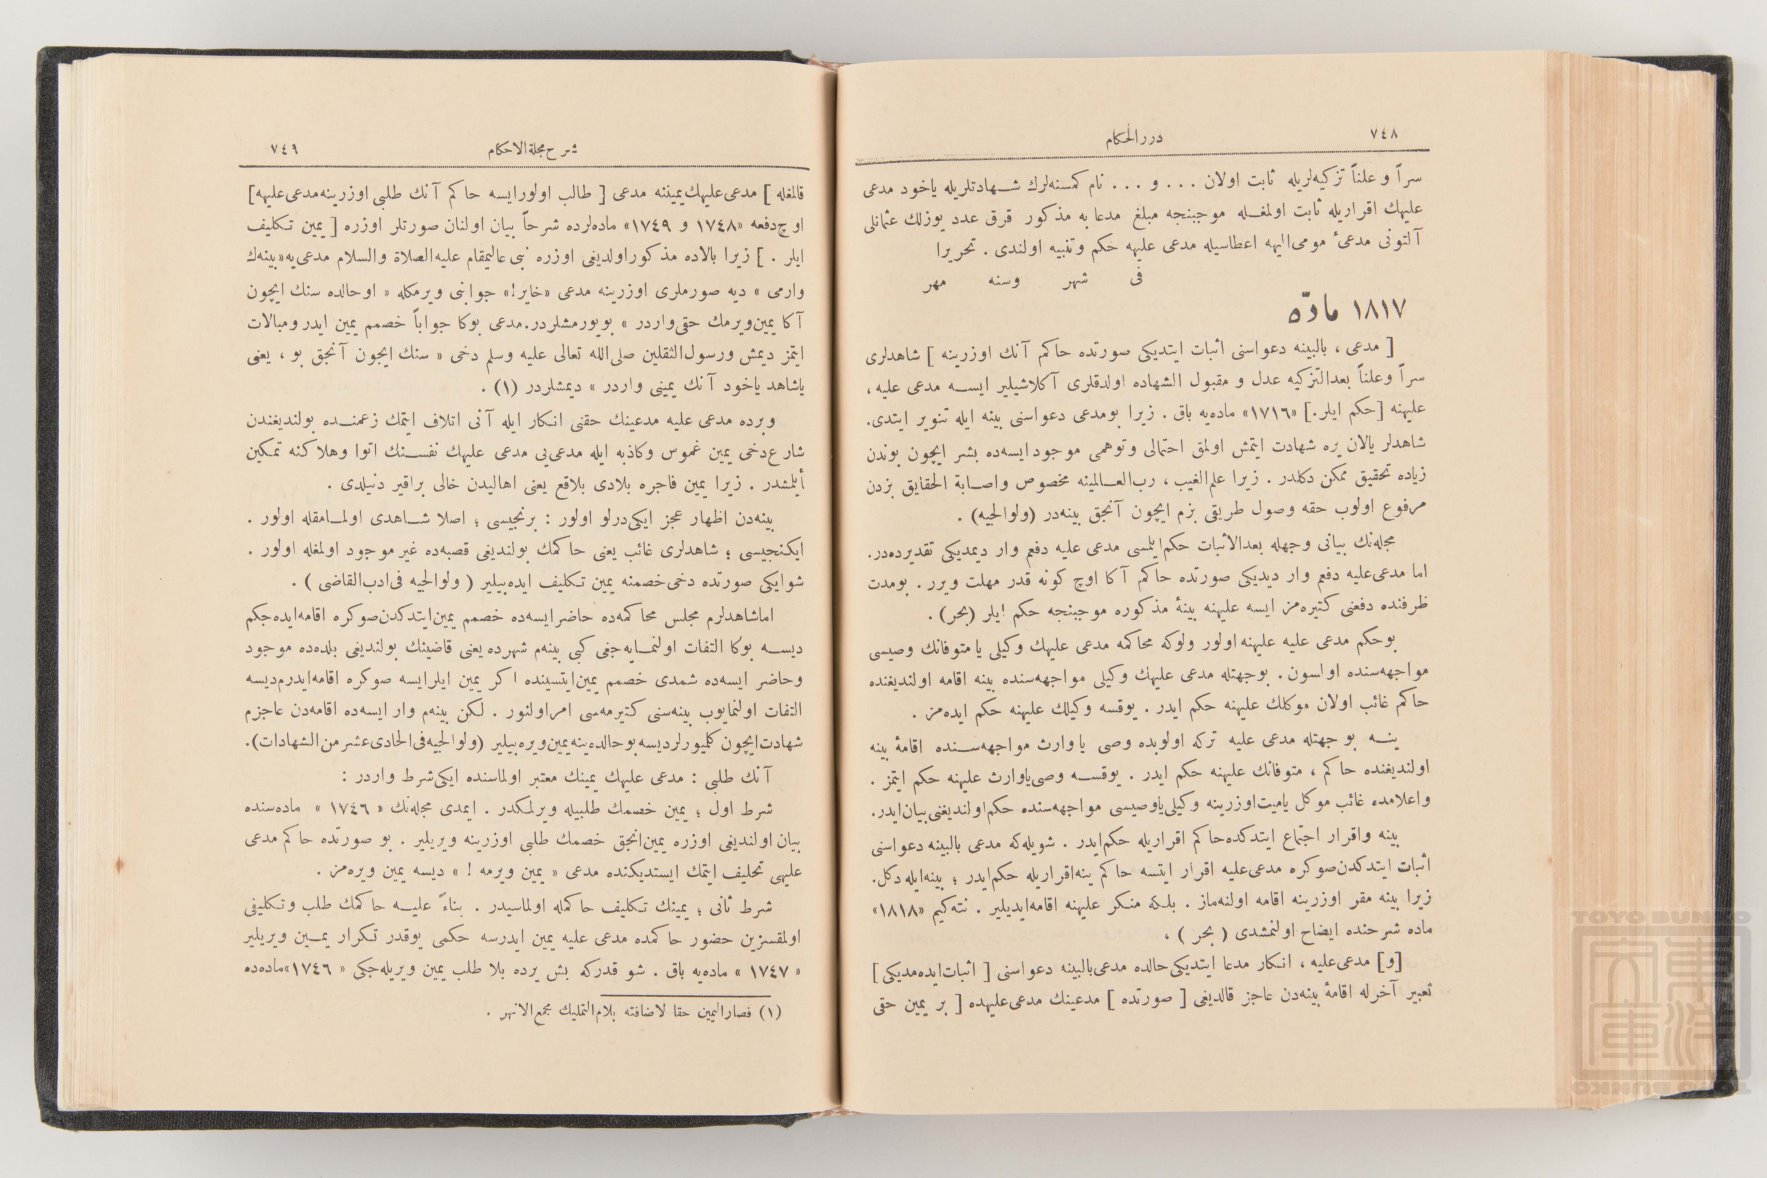 ٧٤٨
دررالحكام
سراً و علناً تزكيه‌لريله ثابت اولان ... و ... نام كمسنه‌لرك شهادتلريله ياخود مدعى
عليهك اقراريله ثابت اولمغله موجبنجه مبلغ مدعا به مذكور قرق عدد يوزلك عثمانلى
آلتونى مدعىٔ مومى‌اليهه اعطاسيله مدعى عليهه حكم وتنبيه اولندى . تحريرا
فى شهر وسنه مهر
١٨١٧ مادّه
[ مدعى ، بالبينه دعواسنى اثبات ايتديكى صورتده حاكم آنك اوزرينه ] شاهدلرى
سراً وعلناً بعدالتزكيه عدل و مقبول الشهاده اولدقلرى آكلاشيلير ايسه مدعى عليه ،
عليهنه [حكم ايلر.] «١٧١٦» ماده‌يه باق . زيرا بومدعى دعواسنى بينه ايله تنوير ايتدى.
شاهدلر يالان يره شهادت ايتمش اولمق احتمالى وتوهمى موجود ايسه‌ده بشر ايچون بوندن
زياده تحقيق ممكن دكلدر . زيرا علم‌الغيب ، رب‌العالمينه مخصوص واصابة الحقايق بزدن
مرفوع اولوب حقه وصول طريقى بزم ايچون آنجق بينه‌در (ولوالجيه) .
مجله‌نك بيانى وجهله بعدالاثبات حكم‌ايلمسى مدعى عليه دفعم وار ديمديكى تقديرده‌در.
اما مدعى‌عليه دفعم وار ديديكى صورتده حاكم آكا اوچ كونه قدر مهلت ويرر . بومدت
ظرفنده دفعنى كتيره‌مز ايسه عليهنه بينهٔ مذكوره موجبنجه حكم ايلر (بحر) .
بوحكم مدعى عليه عليهنه اولور ولوكه محاكمه مدعى عليهك وكيلى يا متوفانك وصيسى
مواجهه‌سنده اولسون . بوجهتله مدعى عليهك وكيلى مواجهه‌سنده بينه اقامه اولنديغنده
حاكم غائب اولان موكلك عليهنه حكم ايدر . يوقسه وكيلك عليهنه حكم ايده‌مز .
ينه بو جهتله مدعى عليه تركه اولوبده وصى ياوارث مواجهه‌سنده اقامهٔ بينه
اولنديغنده حاكم ، متوفانك عليهنه حكم ايدر . يوقسه وصى‌ياوارث عليهنه حكم ايتمز .
واعلامده غائب موكل ياميت‌اوزرينه وكيلى‌ياوصيسى مواجهه‌سنده حكم‌اولنديغنى‌بيان‌ايدر.
بينه واقرار اجتماع ايتدكده‌حاكم اقراريله حكم‌ايدر . شويله‌كه مدعى بالبينه دعواسنى
اثبات ايتدكدن‌صوكره مدعى‌عليه اقرار ايتسه حاكم ينه‌اقراريله حكم‌ايدر ؛ بينه‌ايله دكل.
زيرا بينه مقر اوزرينه اقامه اولنه‌ماز . بلكه منكر عليهنه اقامه‌ايديلير . نته‌كيم «١٨١٨»
ماده شرحنده ايضاح اولنمشدى ( بحر ) ،
[و] مدعى‌عليه ، انكار مدعا ايتديكى‌حالده مدعى‌بالبينه دعواسنى [ اثبات‌ايده‌مديكى]
تعبير آخرله اقامهٔ بينه‌دن عاجز قالديغى [ صورتده ] مدعينك مدعى‌عليهده [ بر يمين حقى
٧٤٩
شرح مجلةالاحكام
قالمغله ] مدعى‌عليهك‌يميننه مدعى [ طالب اولورايسه حاكم آنك طلبى اوزرينه‌مدعى‌عليهه]
اوچ‌دفعه «١٧٤٨ و ١٧٤٩» ماده‌لرده شرحاً بيان اولنان صورتلر اوزره [ يمين تكليف
ايلر . ] زيرا بالاده مذكوراولديغى اوزره نبى عاليمقام عليه‌الصلاة والسلام مدعى‌يه«بينه‌ك
وارمى » ديه صورملرى اوزرينه مدعى «خاير!» جوابنى ويرمكله « اوحالده سنك ايچون
آكا يمين‌ويرمك حتى‌واردر » بويورمشلردر.مدعى بوكا جواباً خصمم يمين ايدر ومبالات
ايتمز ديمش ورسول‌الثقلين صلى‌الله تعالى عليه وسلم دخى « سنك ايچون آنجق بو ، يعنى
ياشاهد ياخود آنك يمينى واردر » ديمشلردر (١) .
وبرده مدعى عليه مدعينك حقنى انكار ايله آنى اتلاف ايتمك زعمنده بولنديغندن
شارع‌دخى يمين غموس وكاذبه ايله مدعى‌يى مدعى عليهك نفسنك اتوا وهلاكنه تمكين
أيلمشدر . زيرا يمين فاجره بلادى بلاقع يعنى اهاليدن خالى براقير دنيلدى .
بينه‌دن اظهار عجز ايكى‌درلو اولور : برنجيسى ؛ اصلا شاهدى اولمامقله اولور .
ايكنجيسى ؛ شاهدلرى غائب يعنى حاكمك بولنديغى قصبه‌ده غير موجود اولمغله اولور .
شوايكى صورتده دخى‌خصمنه يمين تكليف ايده‌بيلير ( ولوالجيه فى‌ادب‌القاضى ) .
اماشاهدلرم مجلس محاكمه‌ده حاضرايسه‌ده خصمم يمين‌ايتدكدن‌صوكره اقامه‌ايده‌جكم
ديسه بوكا التفات اولنمايه‌جغى كبى بينه‌م شهرده يعنى قاضينك بولنديغى بلده‌ده موجود
وحاضر ايسه‌ده شمدى خصمم يمين‌ايتسينده اكر يمين ايلرايسه صوكره اقامه‌ايدرم‌ديسه
التفات اولنمايوب بينه‌سنى كتيرمه‌سى امراولنور . لكن بينه‌م وار ايسه‌ده اقامه‌دن عاجزم
شهادت‌ايچون كلميورلرديسه بوحالده‌ينه‌يمين‌ويره‌بيلير (ولوالجيه‌فى‌الحادى‌عشرمن‌الشهادات).
آنك طلبى : مدعى عليهك يمينك معتبر اولماسنده ايكى‌شرط واردر :
شرط اول ؛ يمين خصمك طلبيله ويرلمكدر . ايمدى مجله‌نك « ١٧٤٦ » ماده‌سنده
بيان‌اولنديغى اوزره يمين‌انجق خصمك طلبى اوزرينه ويريلير . بو صورتده حاكم مدعى
عليهى تحليف ايتمك ايستديكنده مدعى « يمين ويرمه ! » ديسه يمين ويره‌مز .
شرط ثانى ؛ يمينك تكليف حاكمله اولماسيدر . بناءً عليه حاكمك طلب وتكليفى
اولمقسزين حضور حاكمده مدعى عليه يمين ايدرسه حكمى يوقدر تكرار يمين ويريلير
« ١٧٤٧ » ماده‌يه باق . شو قدركه بش يرده بلا طلب يمين ويريله‌جكى « ١٧٤٦»ماده‌ده
(١) فصاراليمين حقا لاضافته بلام‌التمليك مجمع‌الانهر .
TOYO BUNKO
東洋文庫
TOYO BUNKO